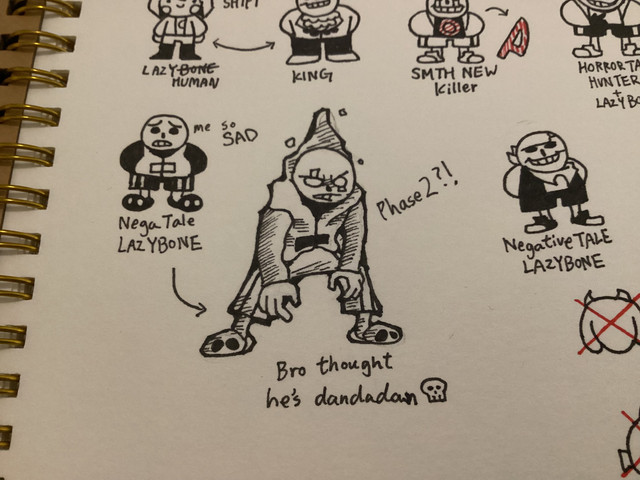 SHIFT
LAZYBONE
HUMAN
KING
SMTH NEW
Killer
HORRORTA
HUNTER
+
LAZYBO
me so
SAD
Nega Tale
LAZYBONE
Phase 2?!
Negative TALE
LAZYBONE
Bro thought
he's dandadan